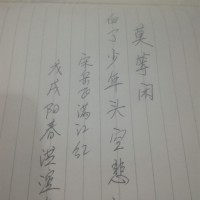 莫等闲
白了少年头空悲
宋岳飞满江红
戊戌阳春洪滨